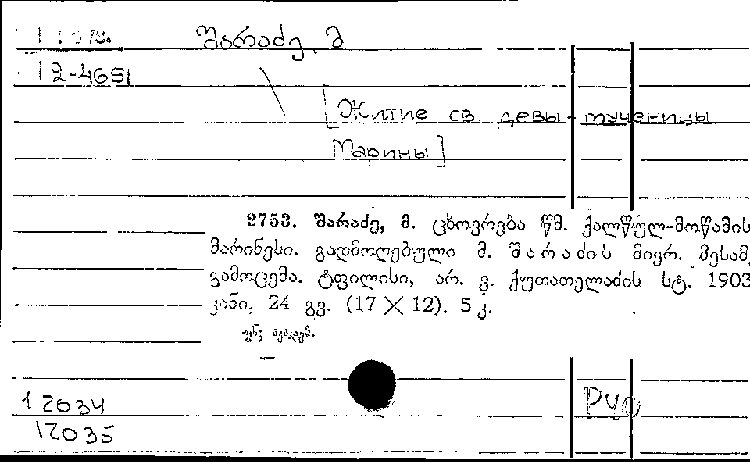 შარაძე, მ
12-4651
[Житие св девы-мученицы
Марины]
2753. შარაძე, მ. ცხოვრება წმ. ქალწულ-მოწამის
მარინესი. გადმოღებული მ. შარაძის მიერ. მესამე
გამოცემა. ტფილისი, არ. ვ. ქუთათელაძის სტ. 1903
24 გვ. (17 × 12). 5 კ.
12034
12035